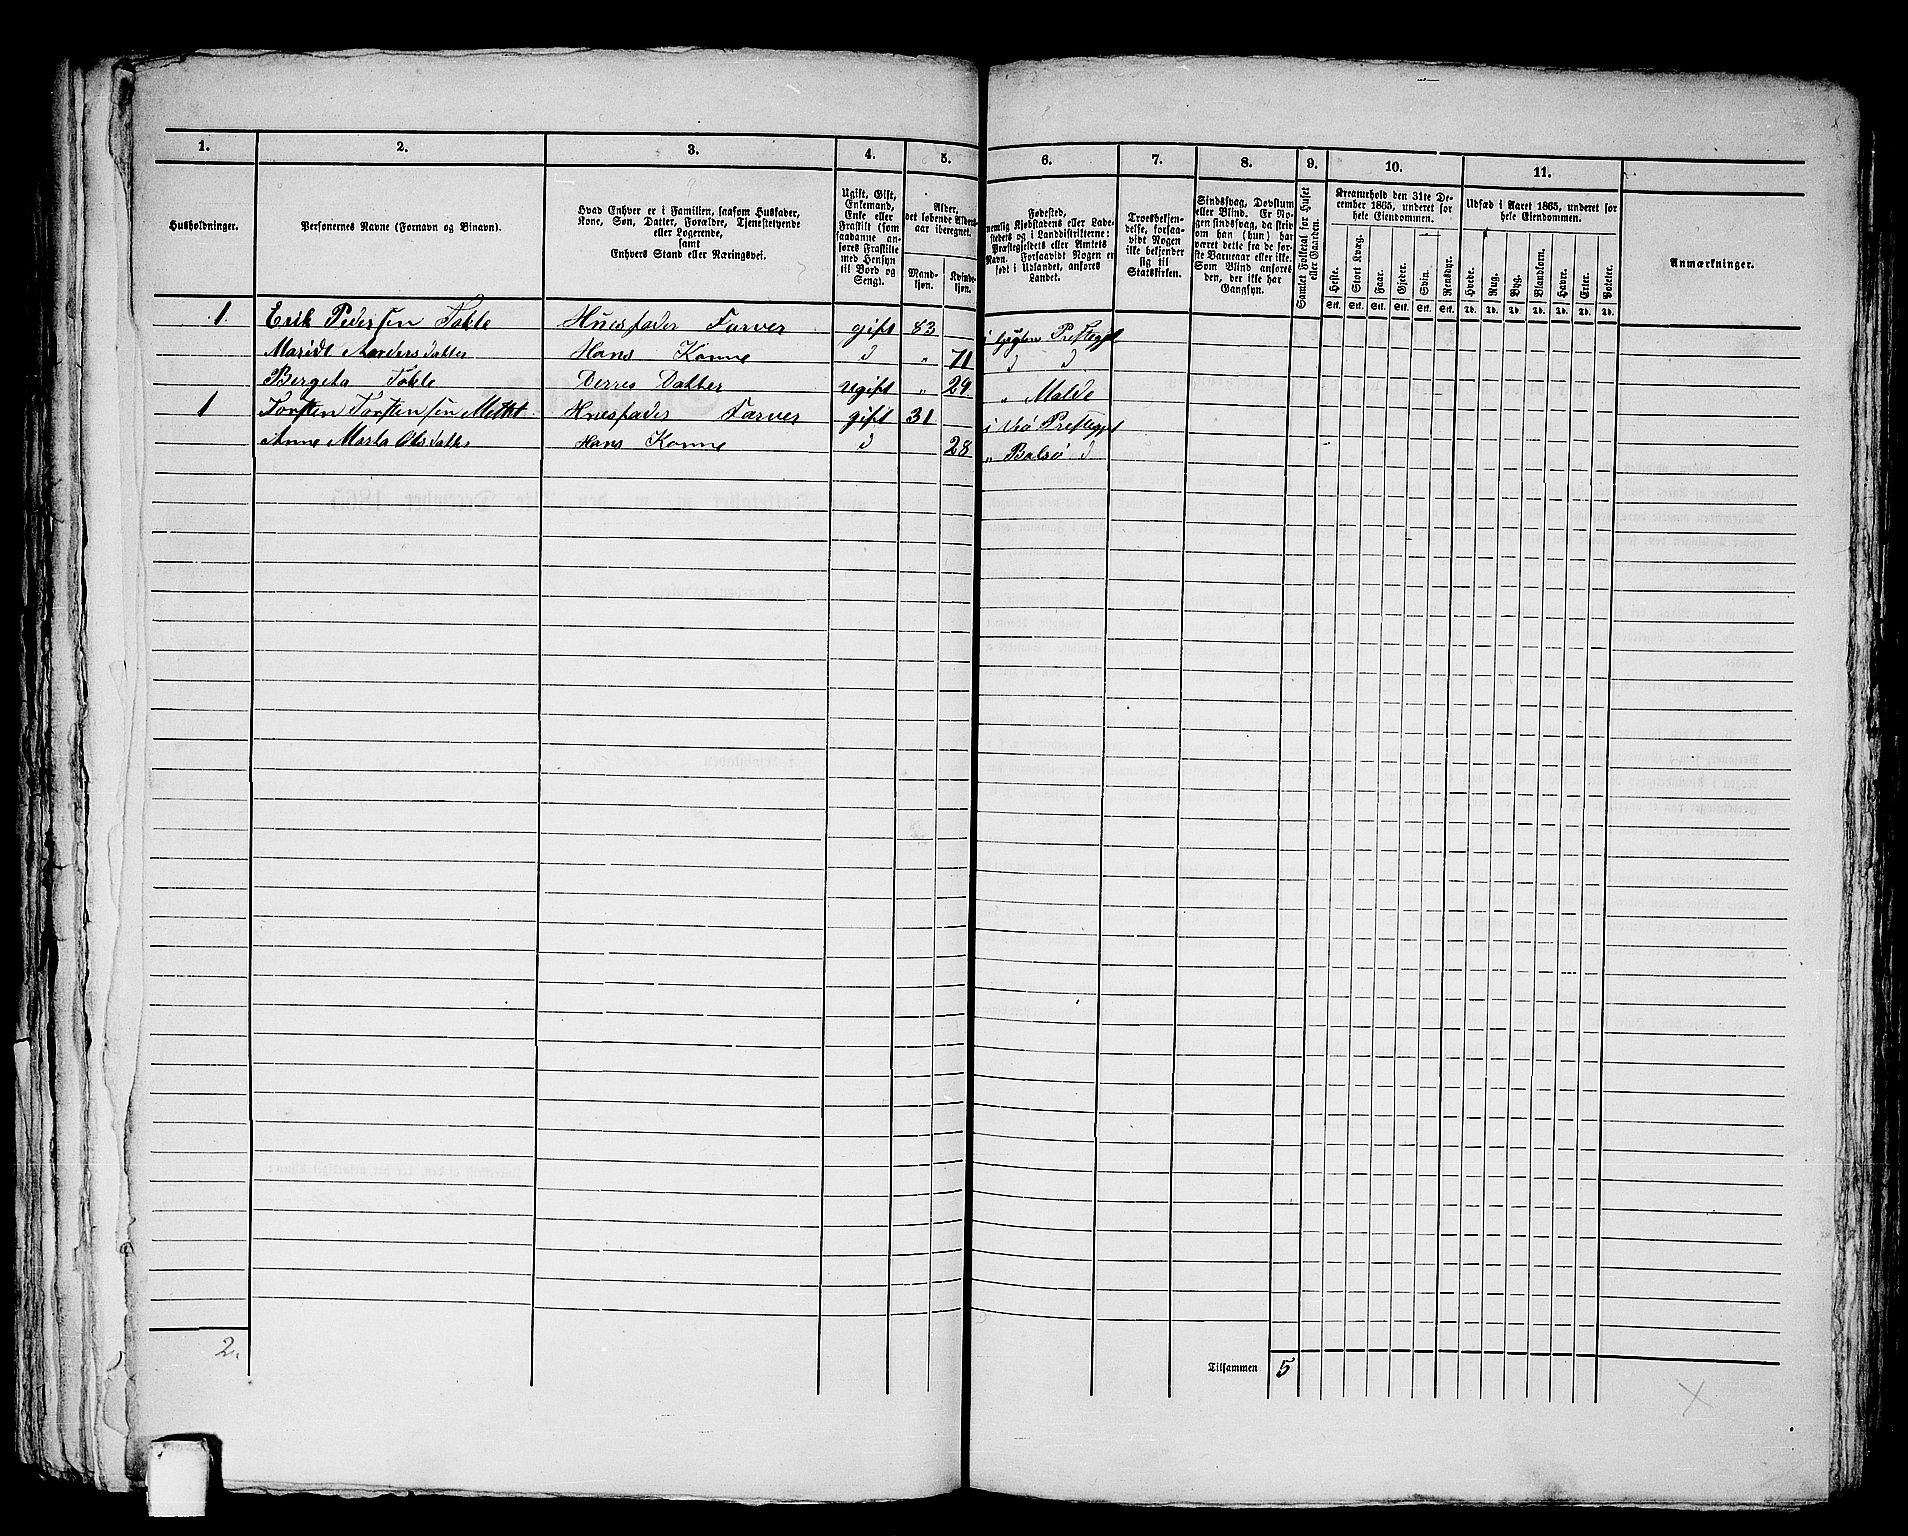 1. 2. 3. 4. 5. 6. 7. 8. 9. 10. 11.
Husholdninger.
Personernes Navne (Fornavn og Binavn).
Hvad Enhver er i Familien, saasom Husfader,
Kone, Søn, Datter, Forældre, Tjenestetyende
eller Logerende,
samt
Enhvers Stand eller Næringsvei.
Ugift, Gift,
Enkemand,
Enke eller
Fraskilt (som
saadanne an-
føres Fraskilte
med Hensyn
til Bord og
Seng).
Alder,
det løbende Alders-
aar iberegnet.
Mand-
kjøn.
Kvinde-
kjøn.
Fødested,
nemlig Kjøbstadens eller Lade-
stedets og i Landdistrikterne:
Præstegjeldets eller Amtets
Navn. Forsaavidt Nogen er
født i Udlandet, anføres
Landet.
Troesbekjen-
delse, forsaa-
vidt Nogen
ikke bekjender
sig til
Statskirken.
Sindssvag, Døvstum
eller Blind. Er No-
gen sindssvag, da skriv
om han (hun) har
været dette fra de før-
ste Barneaar eller ikke.
Som Blind anføres
den, der ikke har
Gangsyn.
Samlet Folketal for Huset
eller Gaarden.
Kreaturhold den 31te De-
cember 1865, underet for
hele Eiendommen.
Heste. Stort Kvæg. Faar. Gjeder. Svin. Rensdyr.
Stk. Stk. Stk. Stk. Stk. Stk.
Udsæd i Aaret 1865, underet for
hele Eiendommen.
Hvede. Rug. Byg. Blandkorn. Havre. Erter. Poteter.
Td. Td. Td. Td. Td. Td. Td.
Anmærkninger.
1. Erik Pedersen Tokle Huusfader Farver gift 83 i Præstegjet
Andersdatter Hans Konne d „ 71 d d
Bergeta Tokle Derres Datter ugift „ 29. „ Molde
1 Torsten Torstensen Huusfader Farver gift 31 i Præstegjet
Anne Marta Olsdatter Hans Konne d 28 „ Bolsø d
2.
Tilsammen 5
X